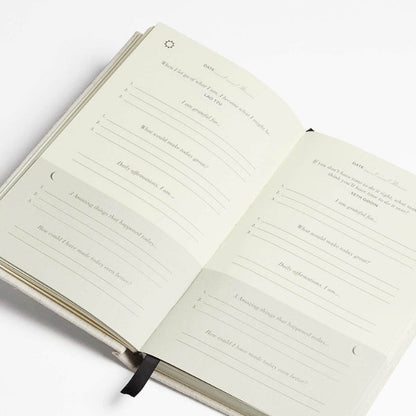 DATE
When I let go of what I am, I become what I might be.
LAO TZU
I am grateful for...
1.
2.
3.
What would make today great?
1.
2.
3.
Daily affirmations. I am...
3 Amazing things that happened today...
1.
2.
3.
How could I have made today even better?
DATE
If you don't have time to do it right, what
think you'll have time to do it over?
SETH GODIN
I am grateful for...
1.
2.
3.
What would make today great?
1.
2.
3.
Daily affirmations. I am...
3 Amazing things that happened today...
1.
2.
3.
How could I have made today even better?